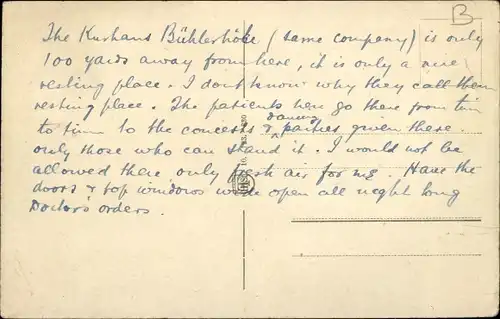 B
The Kurhaus Bühlerhöhe (same company) is only
100 yards away from here, it is only a nice
resting place. I dont know why they call them
resting place. The patients here go there from time
to time to the concerts & dancing parties given there.
only those who can stand it. I would not be
allowed there only fresh air for me. Have the
doors & top windows wide open all night long
Doctor's orders.